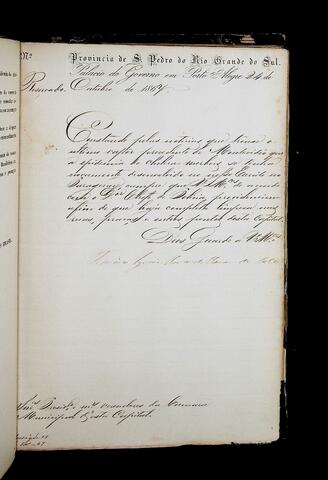 Nº Provincia de S. Pedro do Rio Grande do Sul.
Palacio do Governo em Porto Alegre 24 de
Reservado. Outubro de 1867.
Constando pelas noticias que trouxe o
ultimo vapor procedente de Montevidéo que
a epidemia do cholera morbus se tinha
novamente desenvolvido no nosso Exercito no
Paraguay, cumpre que V Mces de accordo
com o Dor Chefe de Policia, providenciem
afim de que haja completa limpeza nas
ruas, praças e outros pontos desta Capital.
Deos Guarde a V Mces
Snrs Preside e mais vereadores da Camara
Municipal desta Capital.